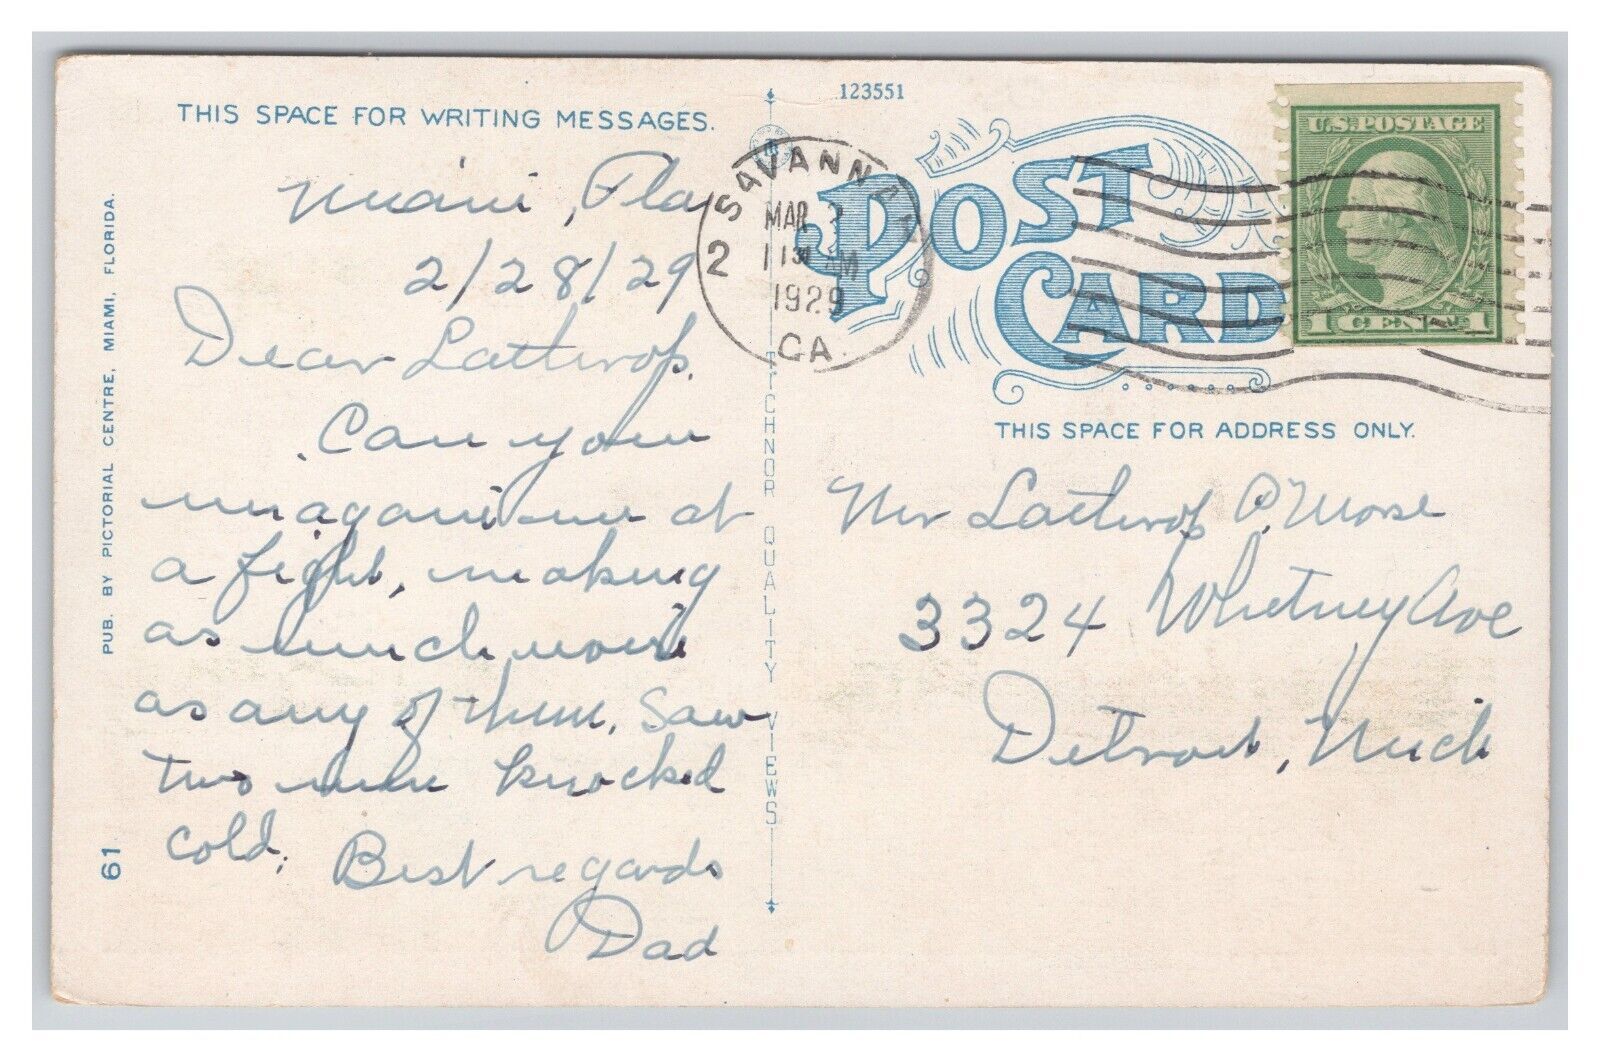 THIS SPACE FOR WRITING MESSAGES.
Miami, Fla
2/28/29
Dear Lathrop.
Can you
imagine me at
a fight, making
as much noise
as any of them. Saw
two men knocked
cold. Best regards
Dad
PUB. BY PICTORIAL CENTRE, MIAMI, FLORIDA.
61
TICHNOR QUALITY VIEWS
123551
POST
CARD
SAVANNAH
MAR 2
1929
GA.
2
U.S. POSTAGE
1 CENT 1
THIS SPACE FOR ADDRESS ONLY.
Mr Lathrop P. Morse
3324 Whitney Ave
Detroit, Mich